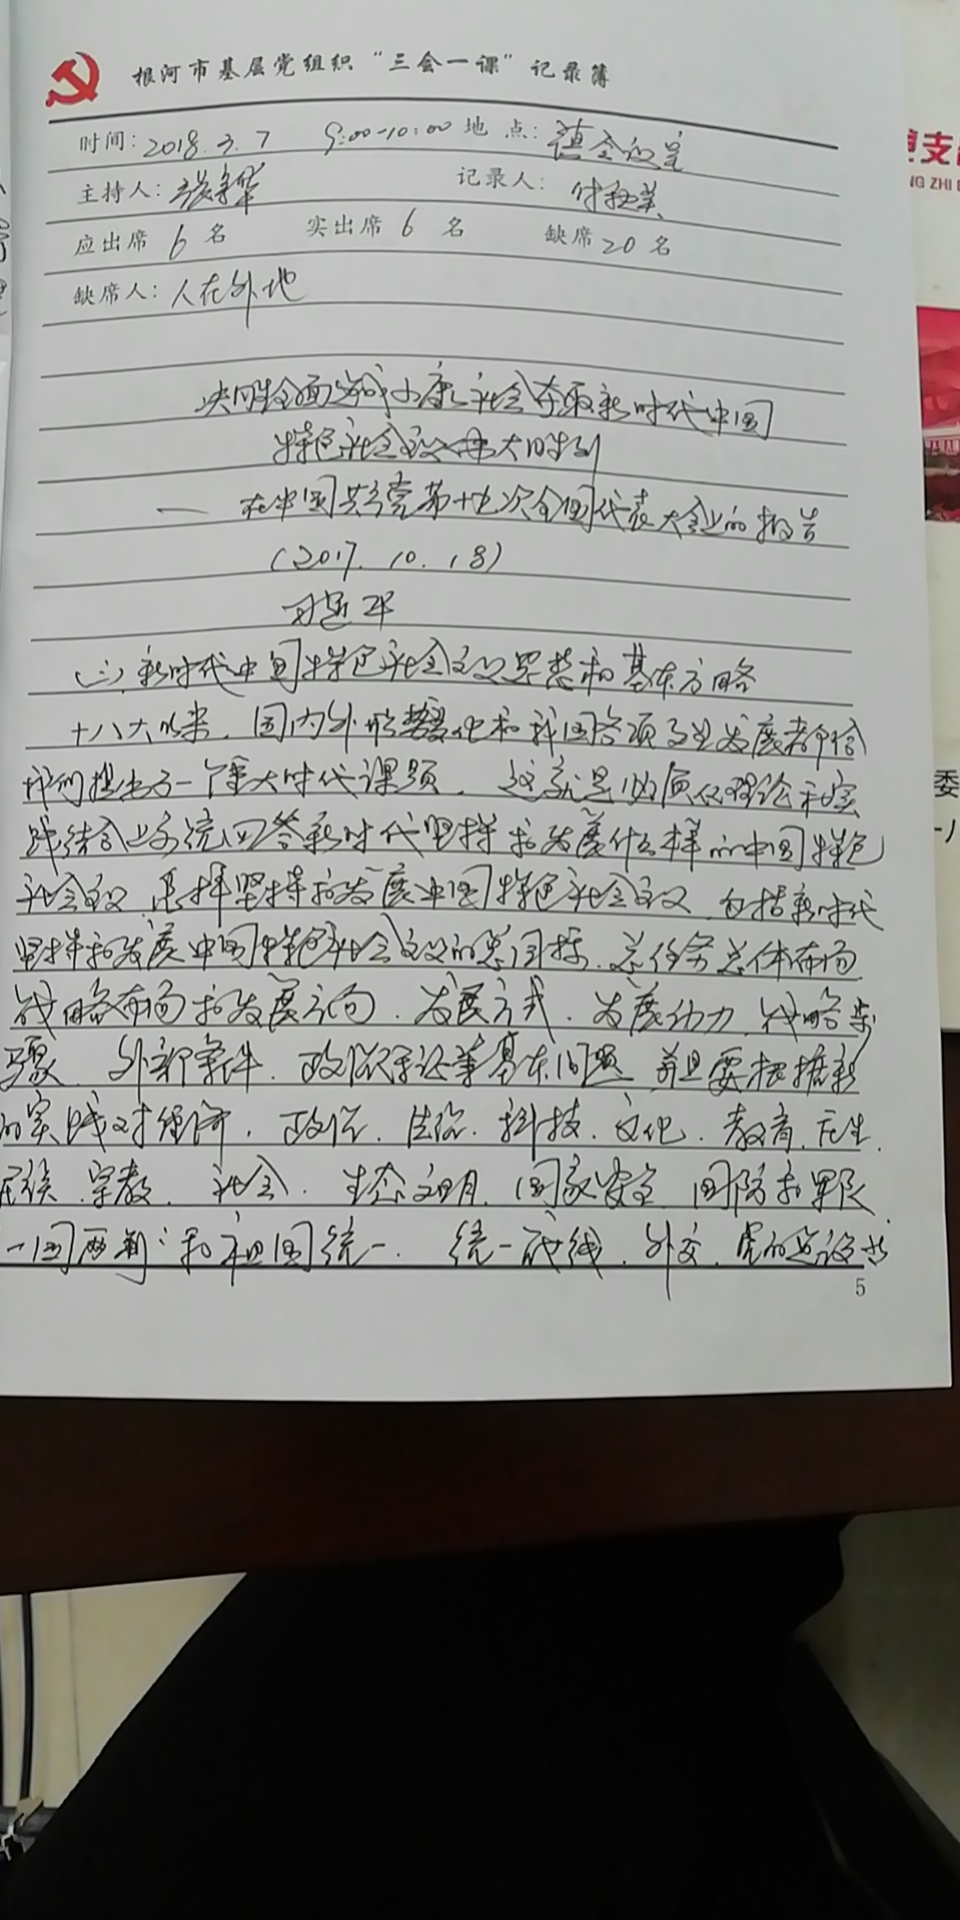 根河市基层党组织“三会一课”记录簿
时间：2018.3.7 9:00-10:00 地 点：镇会议室
主持人： 记录人：付秋美
应出席 6 名 实出席 6 名 缺席 20 名
缺席人：人在外地
决胜全面建成小康社会夺取新时代中国
特色社会主义伟大胜利
— 在中国共产党第十九次全国代表大会上的报告
(2017.10.18)
习近平
(三)新时代中国特色社会主义思想和基本方略
十八大以来，国内外形势变化和我国各项事业发展都给
我们提出了一个重大时代课题，这就是必须从理论和实
践结合上系统回答新时代坚持和发展什么样的中国特色
社会主义，怎样坚持和发展中国特色社会主义，包括新时代
坚持和发展中国特色社会主义的总目标、总任务总体布局
战略布局和发展方向、发展方式、发展动力、战略步
骤、外部条件、政治保证等基本问题，并且要根据新
的实践对经济、政治、法治、科技、文化、教育、民生、
民族、宗教、社会、生态文明、国家安全、国防和军队、
一国两制：和祖国统一、统一战线、外交、党的建设
5
支
NG ZHI
委